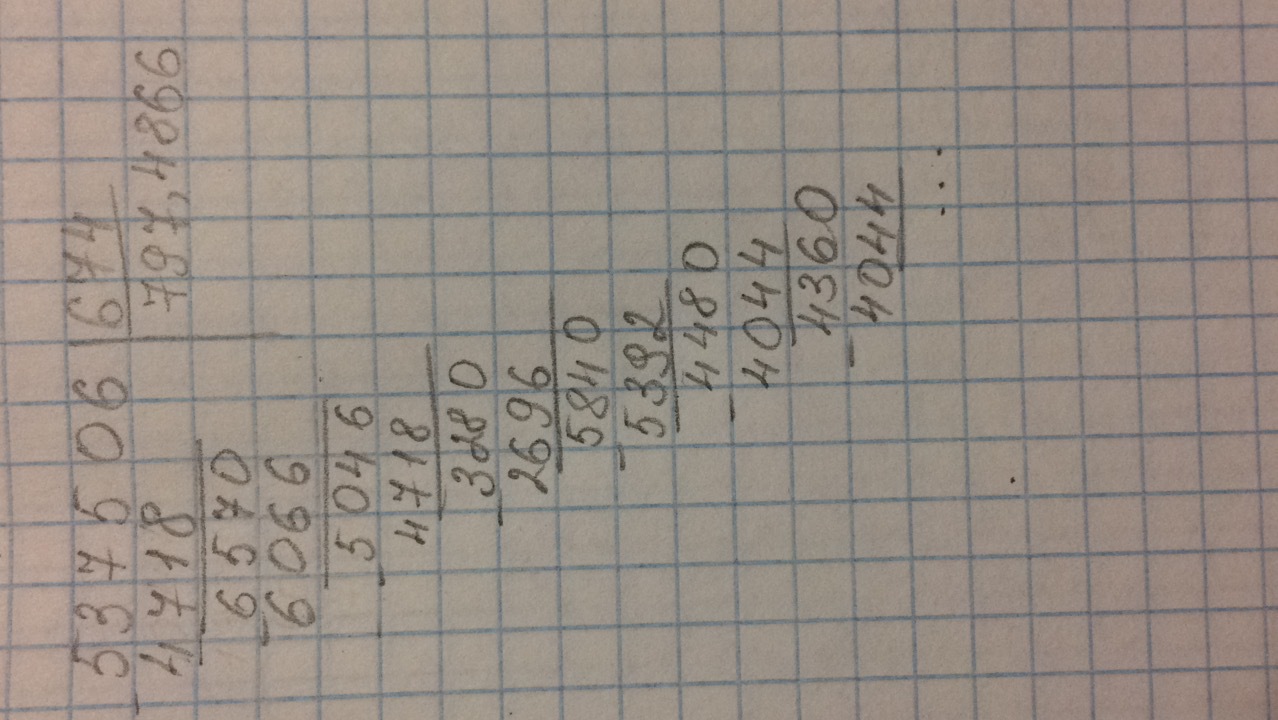 537506 674
4718 797,4866
6570
6066
5046
4718
3280
2696
5840
5392
4480
4044
4360
4044
...